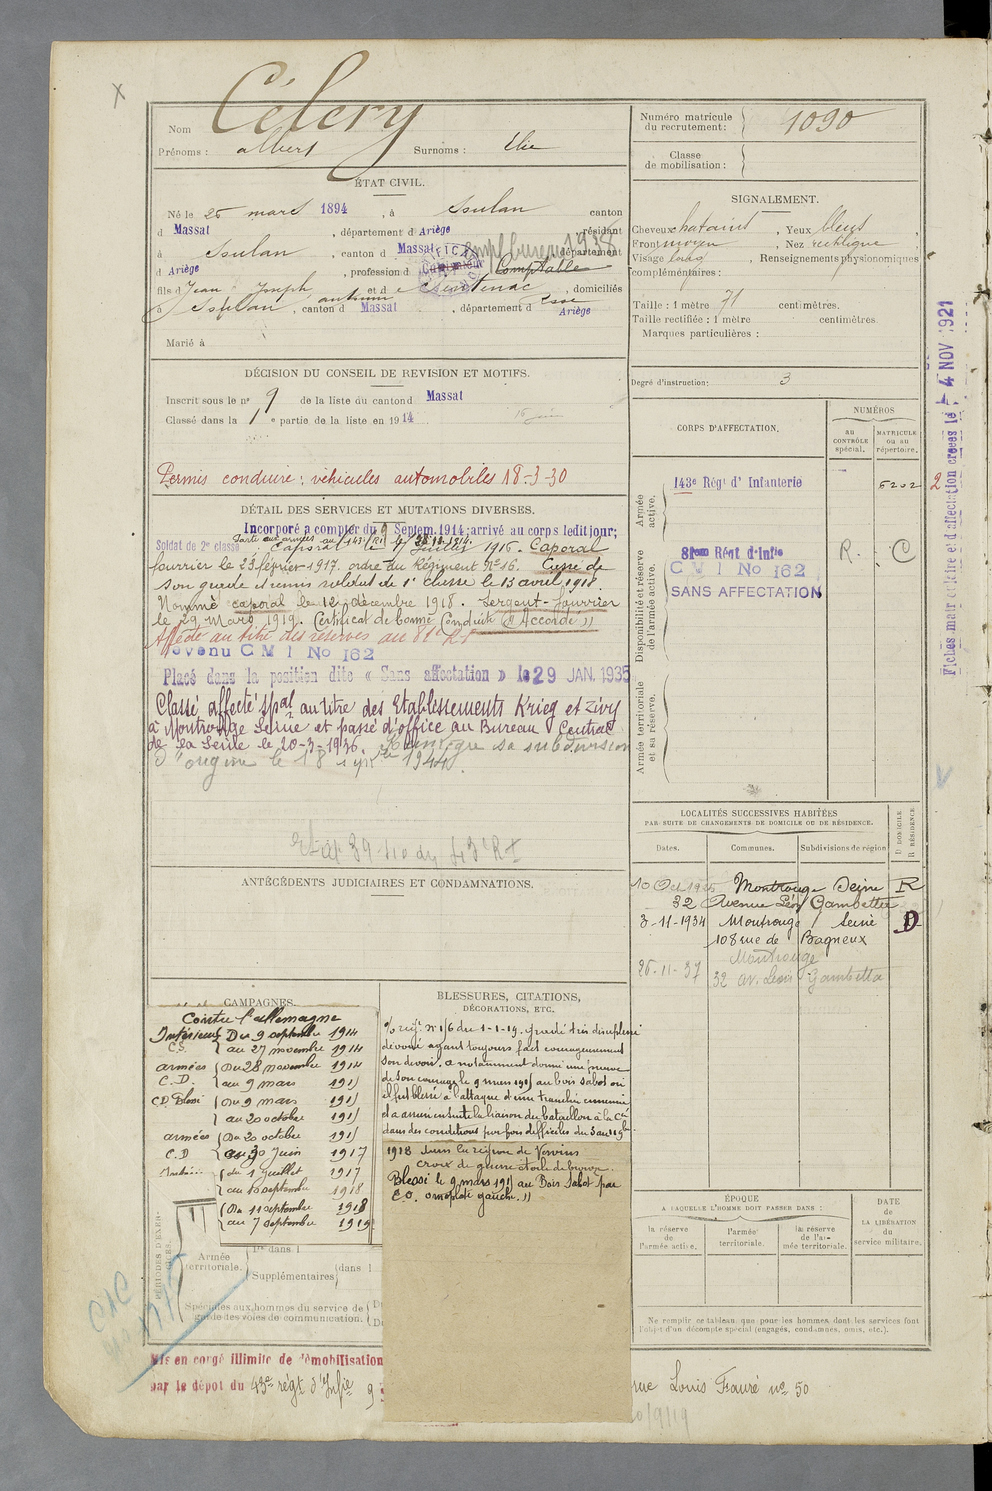 Nom Célery
Prénoms : Albert Surnoms : Elie
Numéro matricule du recrutement : 1090
Classe de mobilisation :
ÉTAT CIVIL.
Né le 25 mars 1894, à Soulan canton
d Massat, département d Ariège, résidant
à Soulan, canton d Massat département
d Ariège, profession d Cultivateur Comptable
empl bureau 1938
fils d Jean Joseph et d e Sentenac, domiciliés
à Soulan, canton d Massat, département d Ariège
Marié à
SIGNALEMENT.
Cheveux chatains, Yeux bleus,
Front moyen, Nez rectiligne
Visage long, Renseignements physionomiques
complémentaires :
Taille : 1 mètre 71 centimètres.
Taille rectifiée : 1 mètre centimètres.
Marques particulières :
Degré d'instruction : 3
DÉCISION DU CONSEIL DE REVISION ET MOTIFS.
Inscrit sous le n° 9 de la liste du canton d Massat
Classé dans la 1e partie de la liste en 1914
Permis conduire : véhicules automobiles 18-3-30
DÉTAIL DES SERVICES ET MUTATIONS DIVERSES.
Incorporé a compter du 9 Septem. 1914 arrivé au corps ledit jour;
Soldat de 2e classe
Caporal le 17 Juillet 1916. Caporal
fourrier le 23 février 1917. ordre du Régiment N° 16. Cassé de
son grade et remis soldat de 1e classe le 13 avril 1918
Nommé caporal le 12 décembre 1918. Sergent-fourrier
le 29 Mars 1919. Certificat de bonne Conduite "Accordé"
Affecté au titre des réserves au 81e RI
devenu C M I No 162
Placé dans la position dite « Sans affectation » le 29 JAN. 1935
Classé affecté spal au titre des Etablissements Krieg et Zivy
à Montrouge Seine et passé d'office au Bureau Central
de la Seine le 20-3-1936. Réintègre sa subdivision
d'origine le 18
CORPS D'AFFECTATION.
NUMÉROS
au contrôle spécial.
MATRICULE ou au répertoire.
Armée active.
143e Régt d'Infanterie
6202
Disponibilité et réserve de l'armée active.
81eme Régt d'Infie
C M I No 162
SANS AFFECTATION
R. C
Armée territoriale et sa réserve.
Fiches matriculaire et d'affectation créées le 4 NOV 1921
2
LOCALITÉS SUCCESSIVES HABITÉES
PAR SUITE DE CHANGEMENTS DE DOMICILE OU DE RÉSIDENCE.
D DOMICILE
R RÉSIDENCE
Dates. Communes. Subdivisions de région
Montrouge Seine R
32 Avenue Léon Gambetta
3-11-1934 Montrouge Seine D
108 rue de Bagneux
Montrouge
26-11-37 32 av. Léon Gambetta
ANTÉCÉDENTS JUDICIAIRES ET CONDAMNATIONS.
CAMPAGNES.
Contre l'allemagne
Intérieur Du 9 septembre 1914
C.S. au 27 novembre 1914
armées Du 28 novembre 1914
C.D. au 9 mars 1915
CD Blessé Du 9 mars 1915
au 20 octobre 1915
armées Du 20 octobre 1915
C.D au 30 Juin 1917
du 1 Juillet 1917
au 10 septembre 1918
Du 11 septembre 1918
au 7 septembre 1919
PÉRIODES D'EXERCICES.
Armée territoriale.
1re dans l
Supplémentaires dans l
Spéciales aux hommes du service de garde des voies de communication.
BLESSURES, CITATIONS,
DÉCORATIONS, ETC.
dévoué ayant toujours fait courageusement
son devoir. a notamment donné une preuve
de son courage le 9 mars 1915 au bois sabot où
il fut blessé à l'attaque d'une tranchée ennemie
et a assuré ensuite la liaison du bataillon à la Cie
dans des conditions parfois difficiles du
1918 dans la région de Vervins
Croix de guerre étoile de bronze.
Blessé le 9 mars 1915 au Bois Sabot par
E.O. omoplate gauche.
ÉPOQUE
A LAQUELLE L'HOMME DOIT PASSER DANS :
la réserve de l'armée active.
l'armée territoriale.
la réserve de l'armée territoriale.
DATE de LA LIBÉRATION du service militaire.
Ne remplir ce tableau que pour les hommes dont les services font
l'objet d'un décompte spécial (engagés, condamnés, omis, etc.).
Mis en congé illimité de démobilisation
par le dépôt du 43e régt d'Infie
rue Louis Fauré n° 50